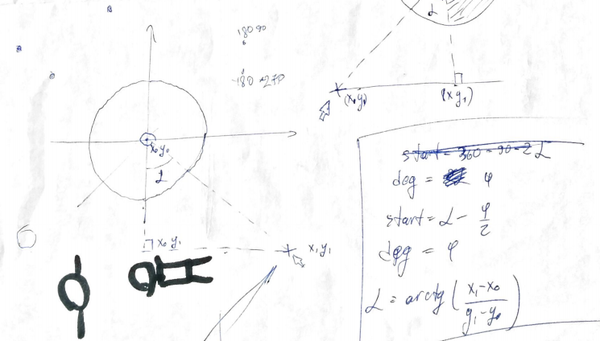 B
180 90
-180 -270
A
x₀ y₀
α
x₀ y₁
x₁ y₁
α
(x₁ y₁)
(x y₁)
start = 360 - 90 - 2 α
deg = φ
start = α - φ/2
deg = φ
α = arctg (x₁-x₀ / y₁-y₀)